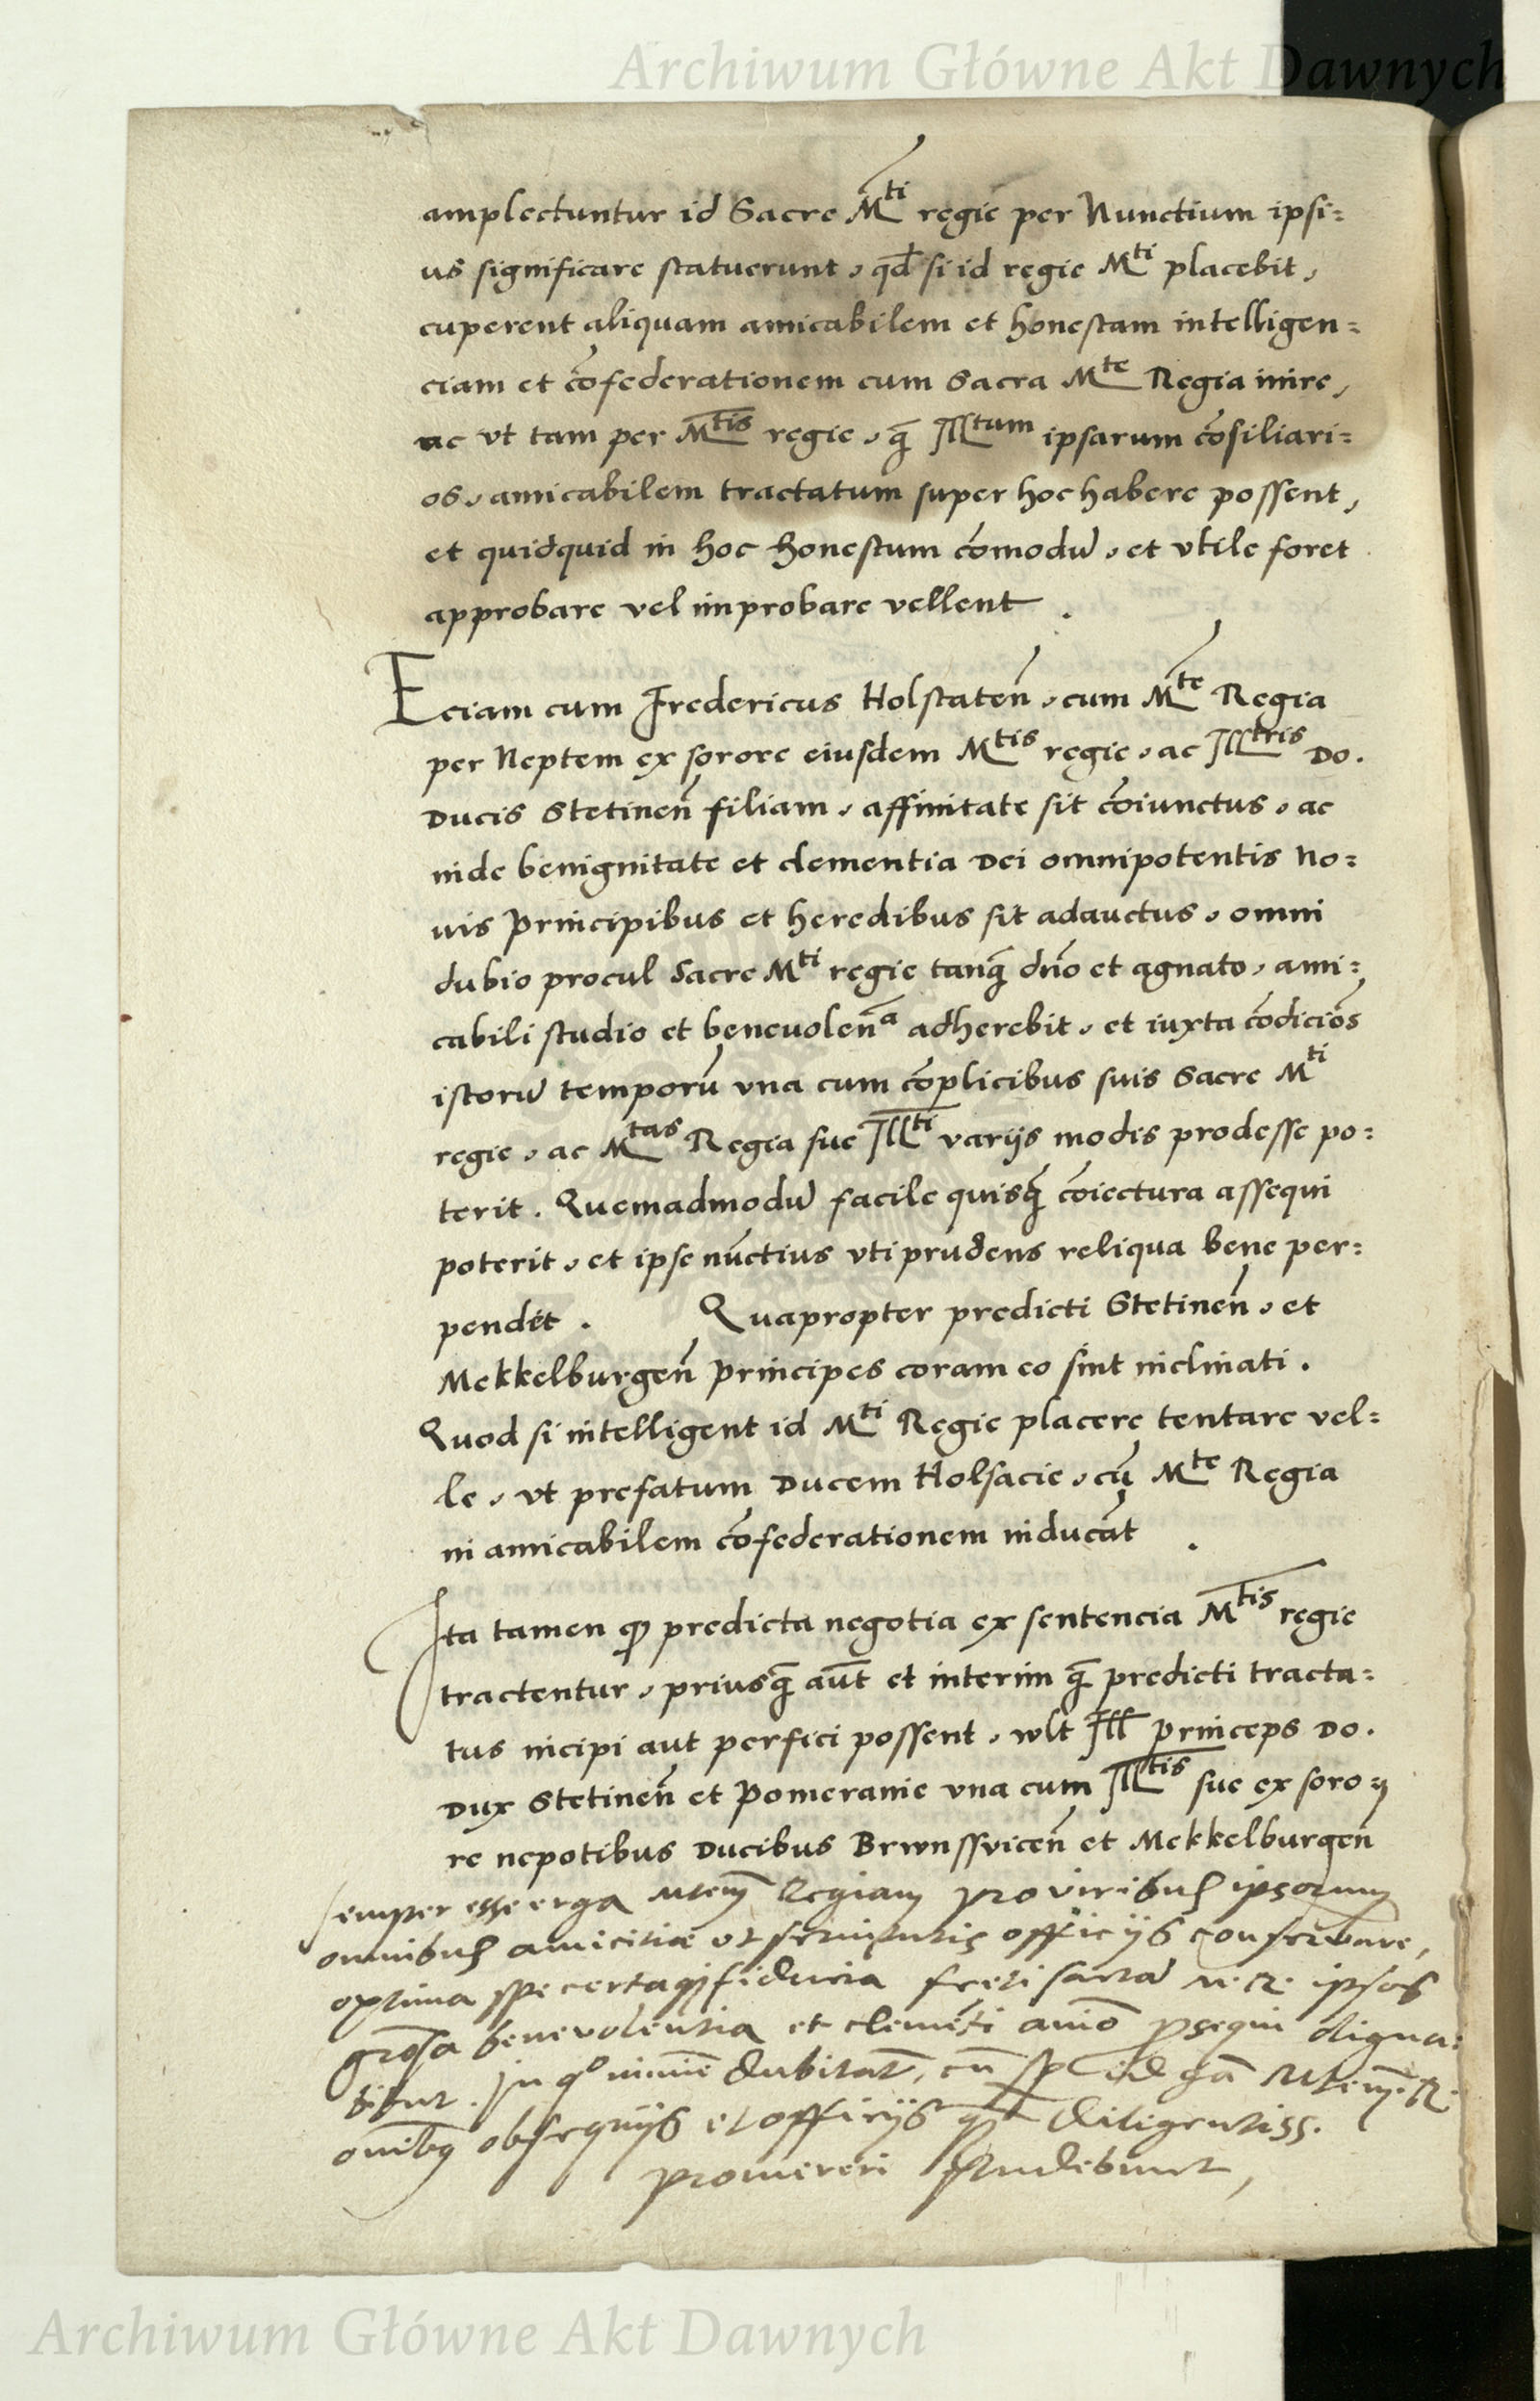 Archiwum Główne Akt Dawnych
amplectuntur id Sacre M^ti regie per Nunctium ipsi=
us significare statuerunt, qd̄ si id regie M^ti placebit,
cuperent aliquam amicabilem et honestam intelligen=
ciam et cōfederationem cum Sacra M^te Regia inire,
ac vt tam per M^tis regie, q̄ Ill^tum ipsarum cōsiliari=
os, amicabilem tractatum super hoc habere possent,
et quidquid in hoc honestum cōmodū, et vtile foret
approbare vel improbare vellent .
Eciam cum Fredericus Holstateñ, cum M^te Regia
per Neptem ex sorore eiusdem M^tis regie, ac Ill^tris Do.
Ducis Stetineñ filiam, affinitate sit cōiunctus, ac
inde benignitate et clementia Dei omnipotentis no=
uis Principibus et heredibus sit adauctus, omni
dubio procul Sacre M^ti regie tanq̄ dño et agnato, ami=
cabili studio et beneuolen^a adherebit, et iuxta cōdiciōs
istorū temporū vna cum cōplicibus suis Sacre M^ti
regie, ac M^tas Regia sue Ill^ti varijs modis prodesse po=
terit. Quemadmodū facile quisq̄ cōiectura assequi
poterit, et ipse nūctius vti prudens reliqua bene per=
pendet . Quapropter predicti Stetineñ, et
Mekkelburgeñ Principes coram eo sint inclinati.
Quod si intelligent id M^ti Regie placere tentare vel=
le, vt prefatum Ducem Holsacie, cū M^te Regia
in amicabilem cōfederationem inducāt .
Ita tamen ꝙ predicta negotia ex sentencia M^tis regie
tractentur, priusq̄ aūt et interim q̄ predicti tracta=
tus incipi aut perfici possent, wlt Ill Princeps Do.
Dux Stetineñ et Pomeranie vna cum Ill^tis sue ex soro=
re nepotibus Ducibus Brwnssviceñ et Mekkelburgeñ
semper esse erga Mtem̄ Regiam pro viribus ipsorum
omnibus amicitiæ et seruitutis officijs conseruare,
optima spe certaqȝ fiducia freti sacrā M. R. ipsos
grōsa benevolentia et clemēti aīo ꝓsequi digna=
bitur. In qº minīe dubitāt, cū sꝑ id gā Mtem̄. R.
omībȝ obsequijs et officijs q̄ diligentiss.
promereri studebunt,
Archiwum Główne Akt Dawnych